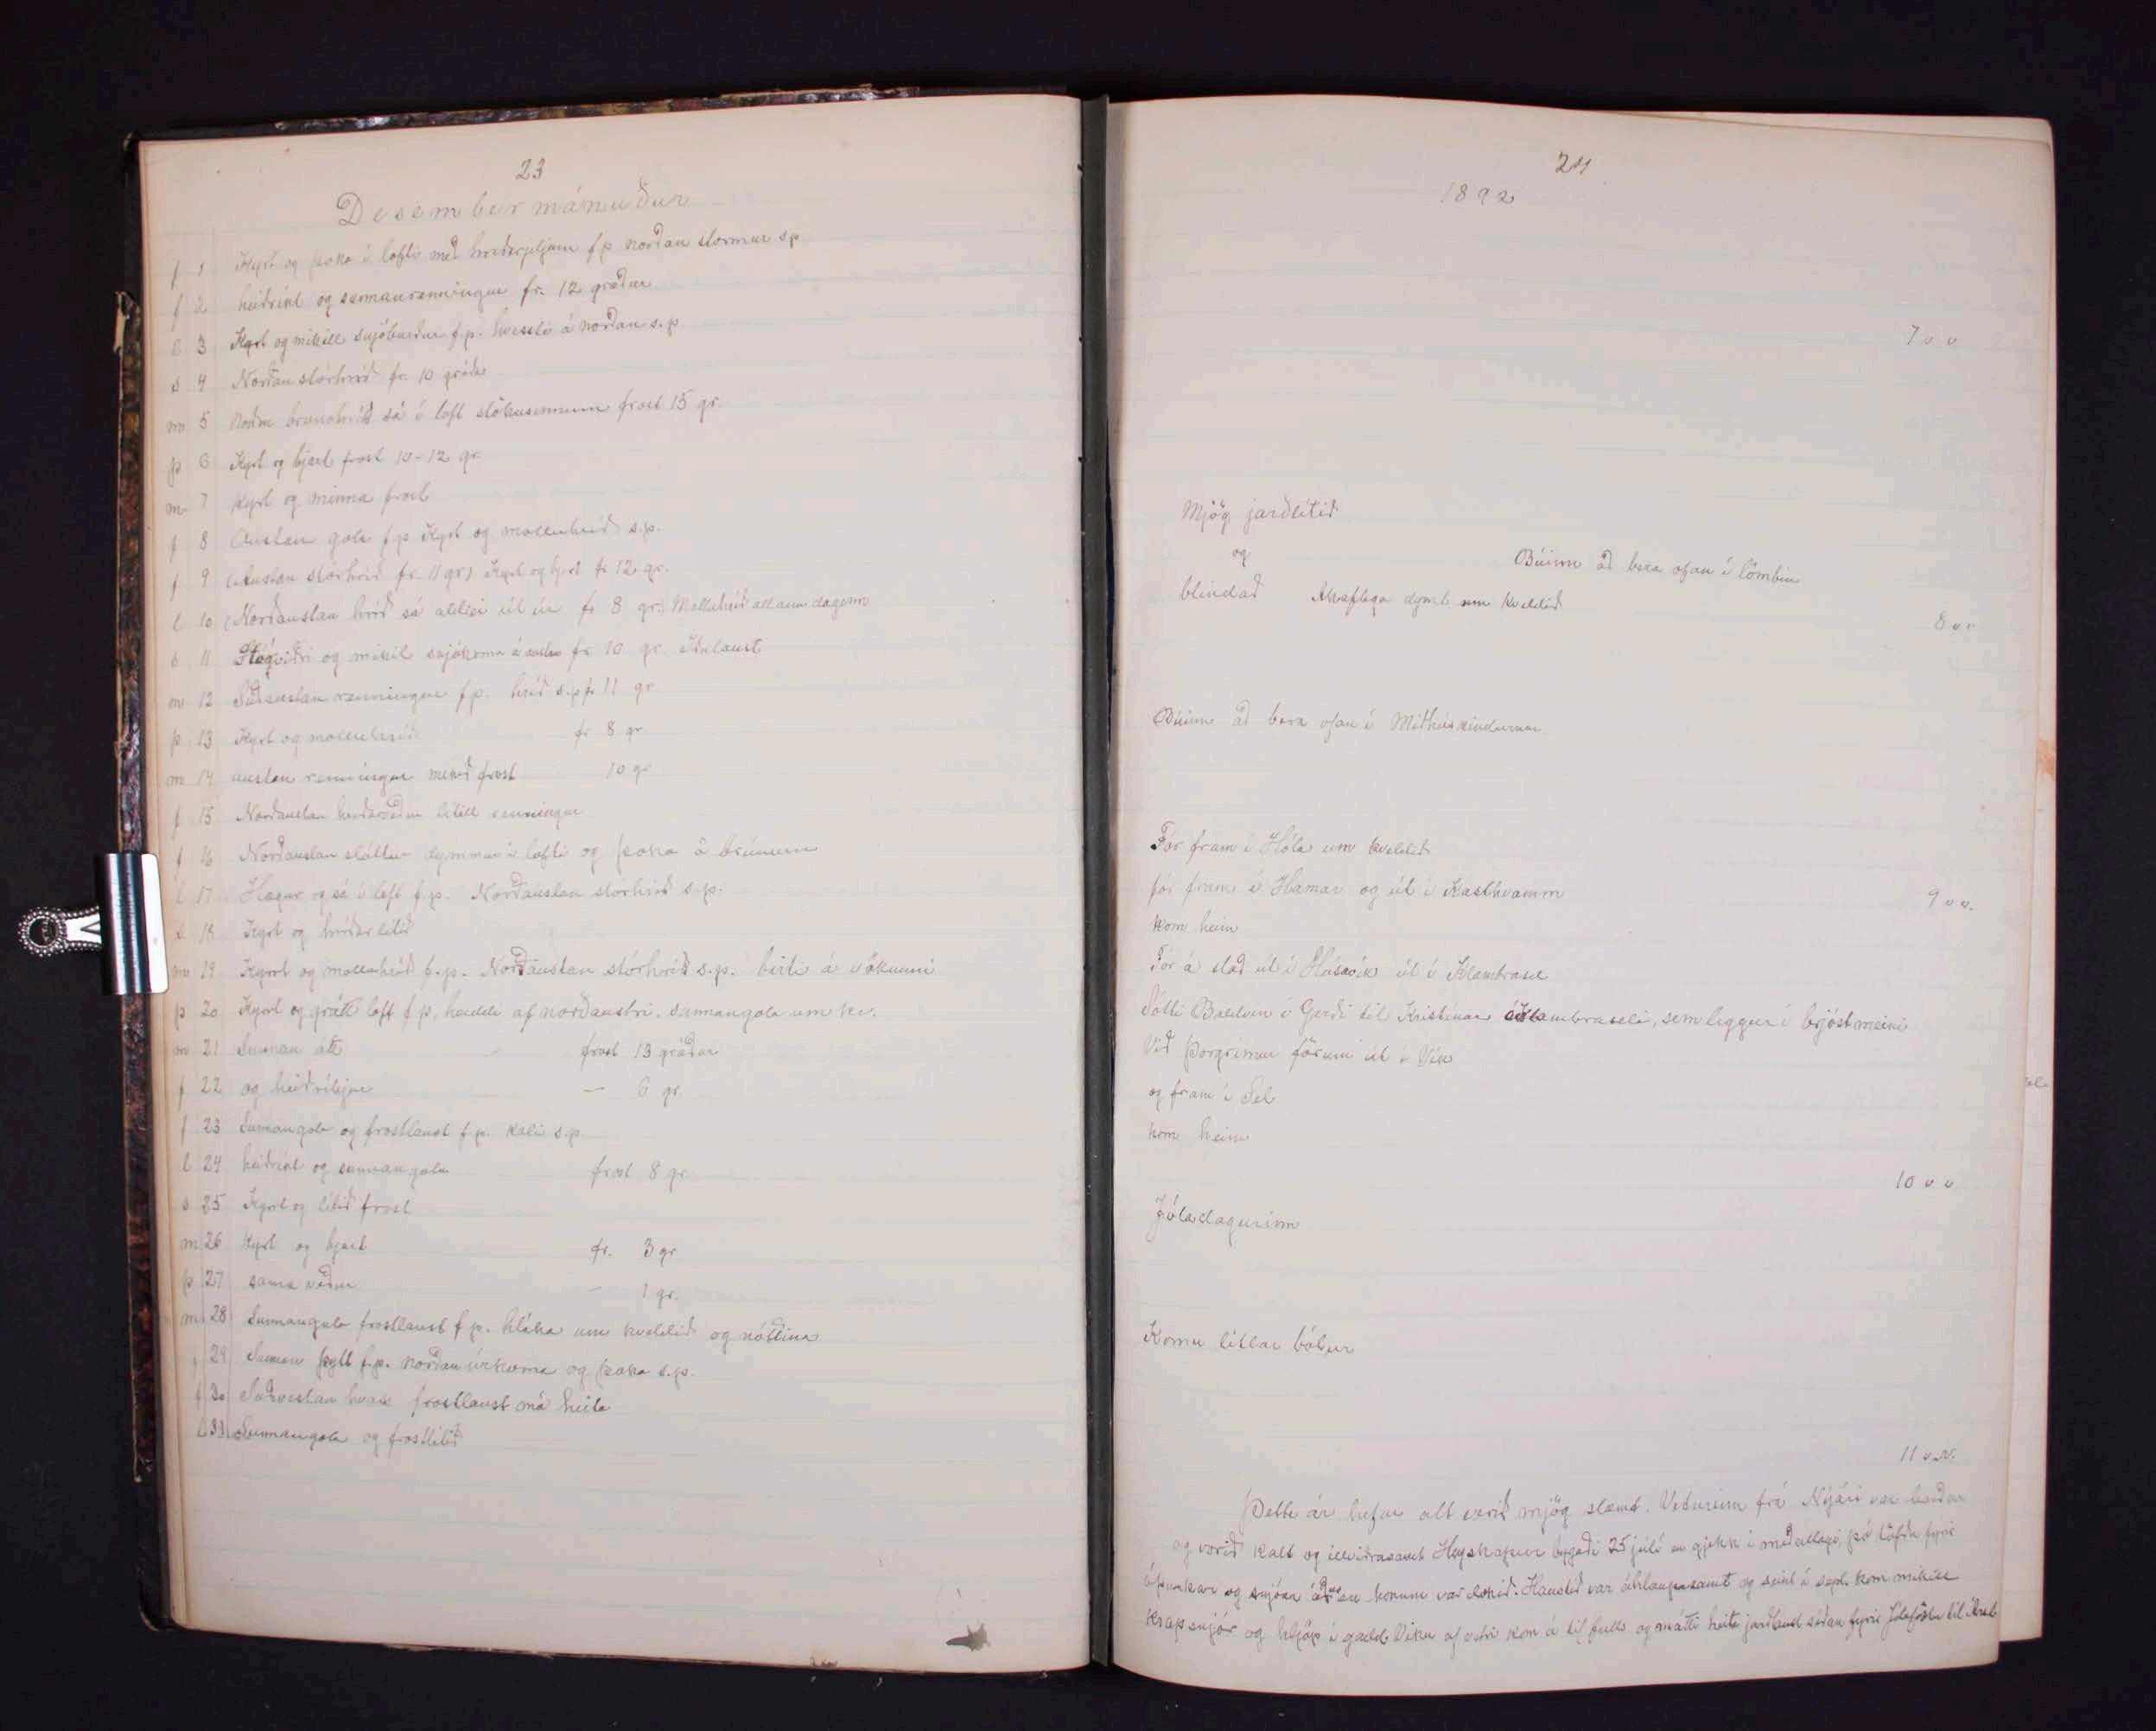 23
Desembermánuður
f 1 Kyrt og þoka í lofti með hríðarjeljum f p norðan stormur s p
f 2 heiðríkt og sunnanrenningur fr. 12 gráður
l 3 Kyrt og mikill snjóburður f.p. hvessti á norðan s.p
s 4 Norðan stórhríð fr. 10 gráður
m 5 Norðan brunahríð sá í loft stökusinnum frost 15 gr.
þ 6 Kyrt og bjart frost 10-12 gr
m 7 Kyrt og minna frost
f 8 Austan gola f p Kyrt og molluhríð s.p.
f 9 Austan stórhríð fr. 11 gr) Kyrt og bjart fr 12 gr.
l 10 Norðaustan hríð sá aldrei út úr fr 8 gr. Molluhríð allann daginn
s 11 Hægviðri og mikil snjókoma á austan fr 10 gr
m 12 Suðaustan renningur f p. hríð s.p fr 11 gr
þ 13 Kyrt og molluhríð fr 8 gr
m 14 austan renningur mikið frost 10 gr
f 15 Norðaustan lítill renningur
f 16 Norðaustan dymmur í lofti og þoka á brúnum
l 17 Hægur og sá í loft f.p. Norðaustan stórhríð s.p.
s 18 Kyrt og hríðarlítið
m 19 Kyrrt og molluhríð f.p. Norðaustan stórhríð s.p. birti á vökunni
þ 20 Kyrrt og grátt loft f p, af norðaustri. sunnangola um kv.
m 21 Sunnan átt frost 13 gráður
f 22 og heiðríkjur — 6 gr.
f 23 Sunnangola og frostlaust f.p. kali s.p
l 24 heiðríkt og sunnangola frost 8 gr.
s 25 Kyrt og lítið frost
m 26 Kyrt og bjart fr. 3 gr
þ 27 sama veður — 1 gr.
m 28 Sunnangola frostlaust f p. hláka um kveldið og nóttina
29 Sunnan þytt f.p. norðan úrkoma og þoka s.p.
f 30 Suðvestan hvass frostlaust má heita
l 31 Sunnangola og frostlítið
24
1892
7 v v
Mjög jarðlítið
og
blindað
Búinn að bera ofan í lömbin
Ákaflega dymt um kveldið
8 v v
Búinn að bera ofan í Miðhúskindurnar
Fór fram í Hóla um kveldið
fór fram í Hamar og út í Kasthvamm
9 v v.
kom heim
Fór á stað út í Húsavík út í Klambrasel
Sótti Baldvin í Garði til Kristínar í Klambraseli, sem liggur í brjóstmeini
Við Þorgrímur fórum út í Vík
og fram í Sel
kom heim
10 v v
Jóladagurinn
Komu litlar bólur
11 v.v.
Þetta ár hefur alt verið mjög slæmt. Veturinn frá Nýári var harður
og vorið kalt og illviðrasamt Heyskapur byrjaði 25 júlí en gjekk í meðallagi, þó töfðu fyrir
óþurkar og snjóar áður en honum var lokið. Haustið var áhlaupasamt og seint á sept. kom mikill
krapsnjór og hljóp í gadd. Viku af vetri kom á til fulls og mátti heita jarðlaust síðan fyrir Jólaföstu til